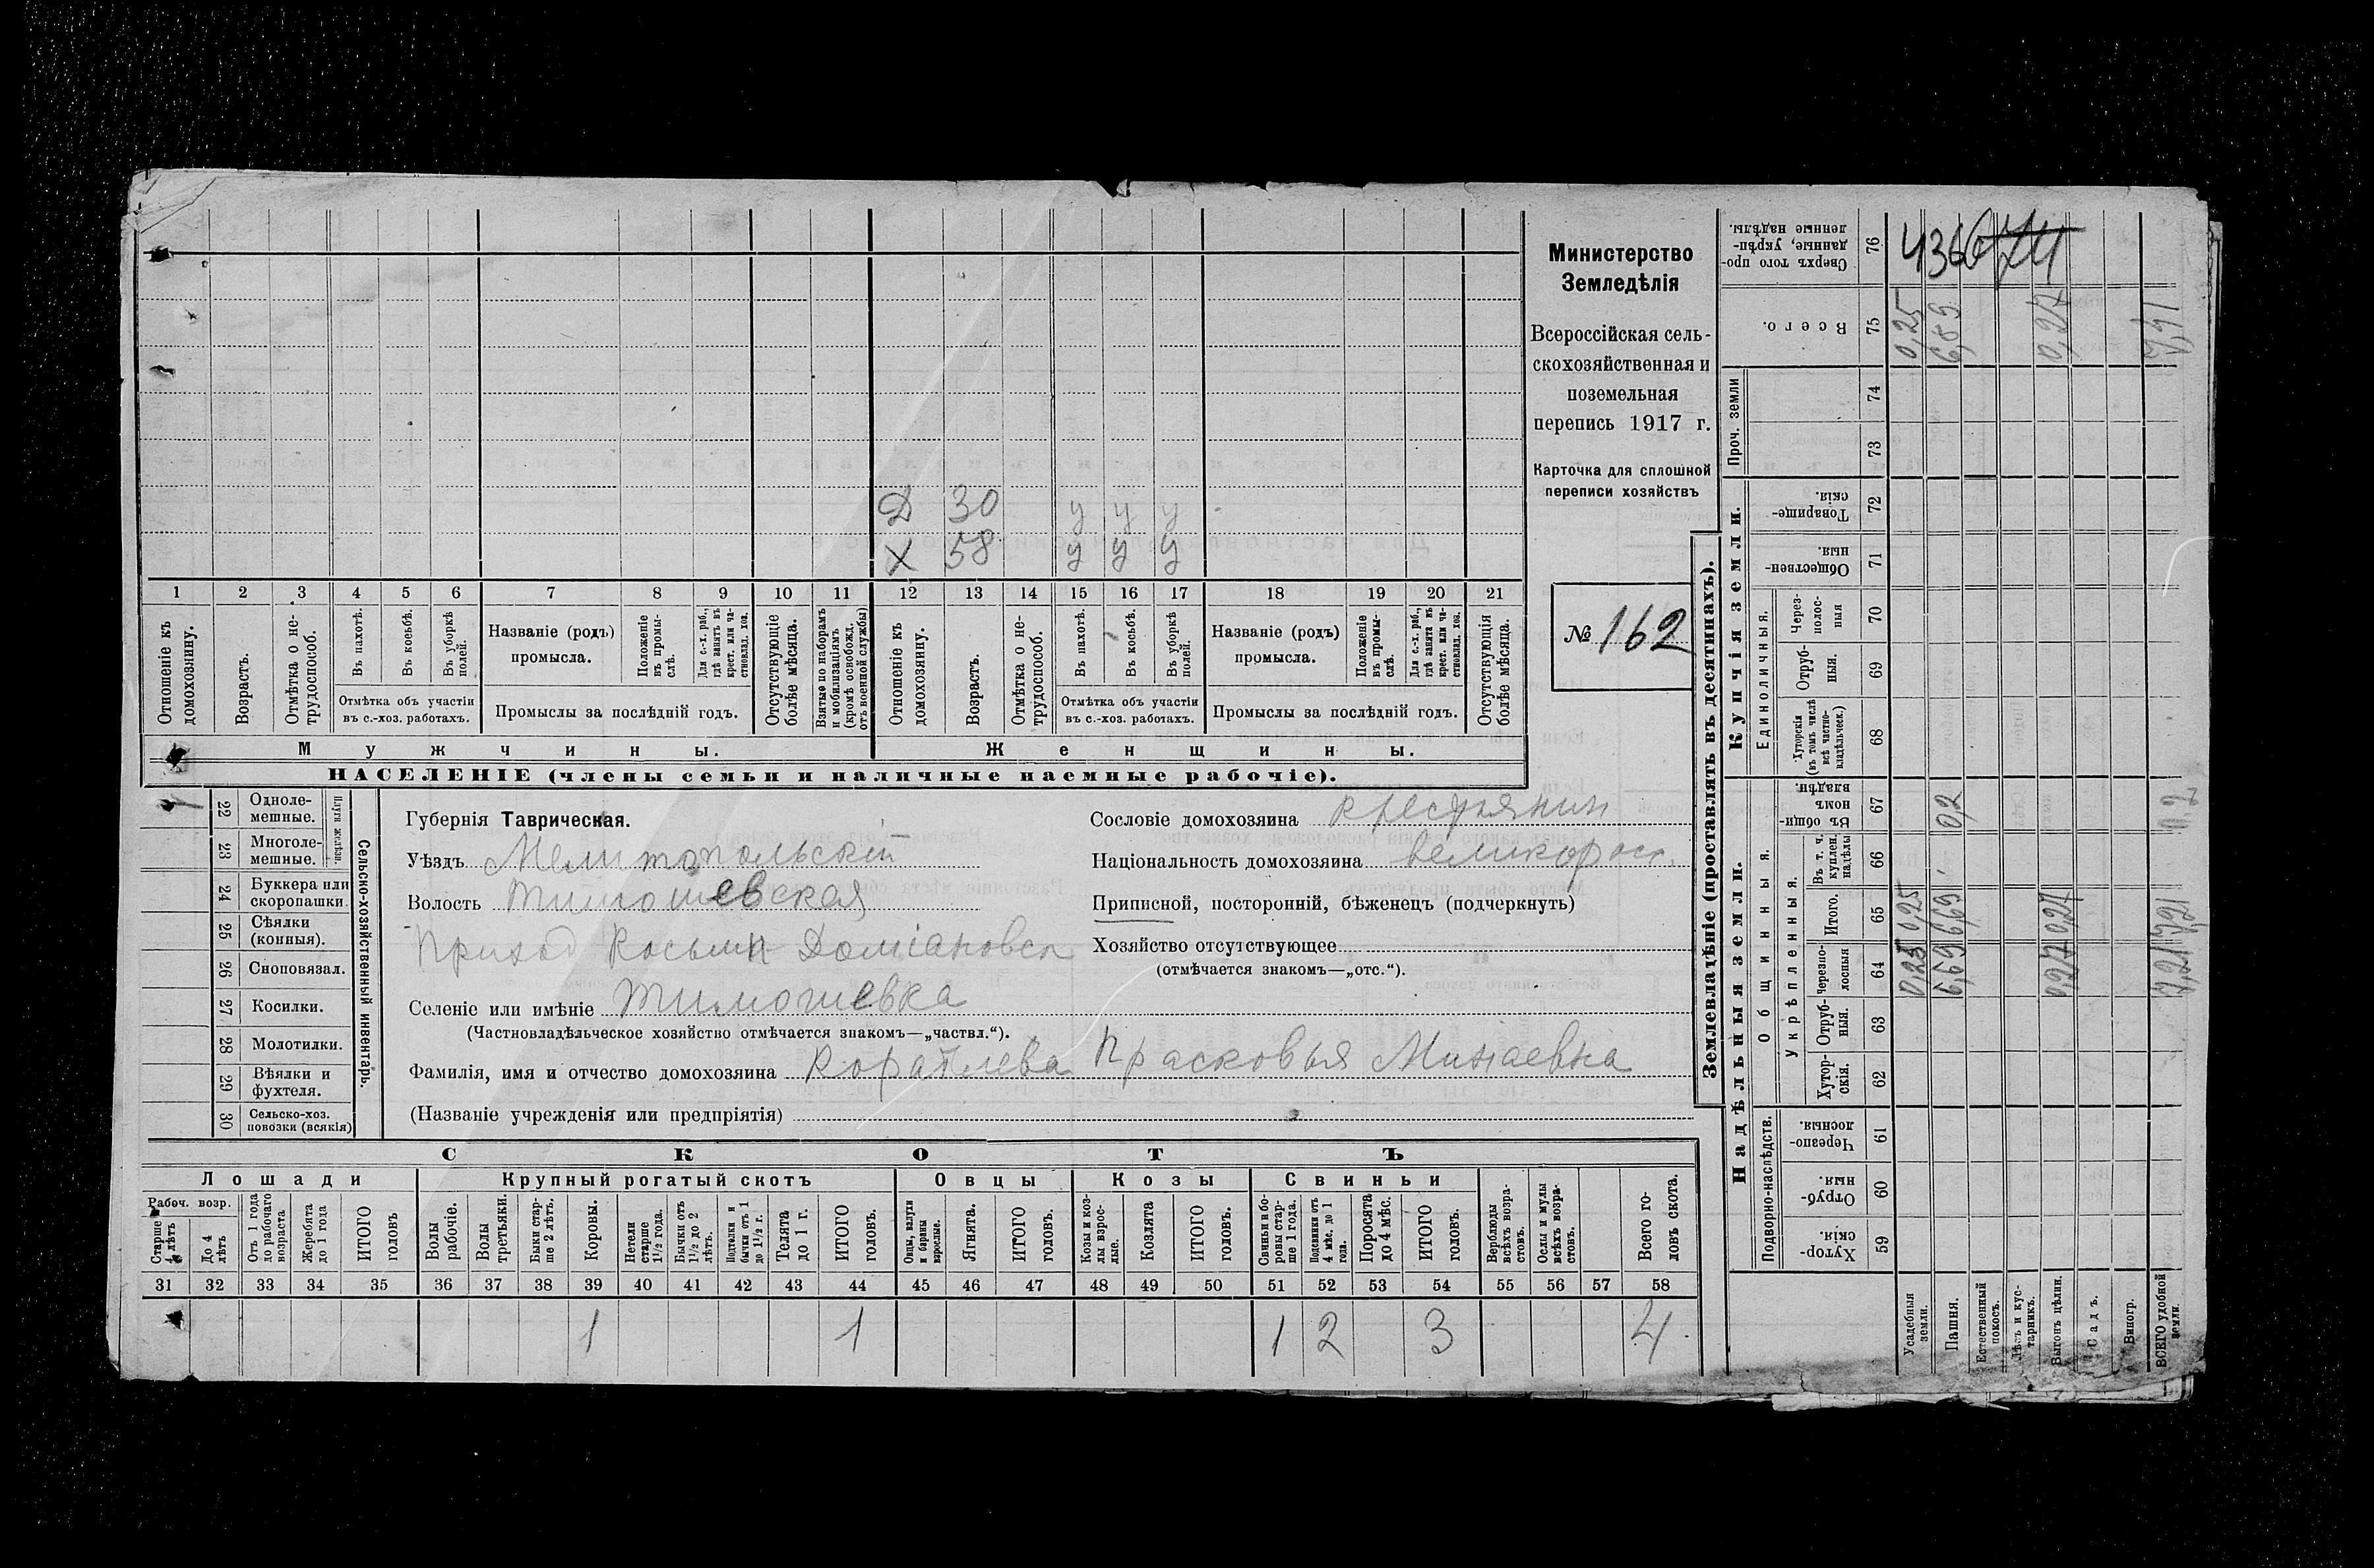 Д 30 у у у
Х 58 у у у
1 2 3 4 5 6 7 8 9 10 11 12 13 14 15 16 17 18 19 20 21
Отношеніе къ домохозяину.
Возрастъ.
Отмѣтка о нетрудоспособ.
Въ пахотѣ.
Въ косьбѣ.
Въ уборкѣ полей.
Отмѣтка объ участіи
въ с.-хоз. работахъ.
Названіе (родъ)
промысла.
Положеніе въ промыслѣ.
Для с.-х. раб., гдѣ занятъ въ крест. или частновлад. хоз.
Промыслы за послѣдній годъ.
Отсутствующіе болѣе мѣсяца.
Взятые по наборамъ и мобилизаціямъ (кромѣ освобожд. отъ военной службы)
Отношеніе къ домохозяину.
Возрастъ.
Отмѣтка о нетрудоспособ.
Въ пахотѣ.
Въ косьбѣ.
Въ уборкѣ полей.
Отмѣтка объ участіи
въ с.-хоз. работахъ.
Названіе (родъ)
промысла.
Положеніе въ промыслѣ.
Для с.-х. раб., гдѣ занята въ крест. или частновлад. хоз.
Промыслы за послѣдній годъ.
Отсутствующія болѣе мѣсяца.
Мужчины. Женщины.
НАСЕЛЕНІЕ (члены семьи и наличные наемные рабочіе).
Министерство
Земледѣлія
Всероссійская сель-
скохозяйственная и
поземельная
перепись 1917 г.
Карточка для сплошной
переписи хозяйствъ
№ 162
Сельско-хозяйственный инвентарь.
Плуги желѣзн.
22 Однолемешные.
23 Многолемешные.
24 Буккера или скоропашки.
25 Сѣялки (конныя).
26 Сноповязал.
27 Косилки.
28 Молотилки.
29 Вѣялки и фухтеля.
30 Сельско-хоз. повозки (всякія)
Губернія Таврическая.
Уѣздъ Мелитопольскій
Волость Тимошевская
Приход Косьми Доміановск
Селеніе или имѣніе Тимошевка
(Частновладѣльческое хозяйство отмѣчается знакомъ—„частвл.“).
Фамилія, имя и отчество домохозяина Кораблева Прасковья Минаевна
(Названіе учрежденія или предпріятія)
Сословіе домохозяина крестьянин
Національность домохозяина великоросс.
Приписной, посторонній, бѣженецъ (подчеркнуть)
Хозяйство отсутствующее
(отмѣчается знакомъ—„отс.“).
СКОТЪ
Лошади Крупный рогатый скотъ Овцы Козы Свиньи
Рабоч. возр.
Старше 4 лѣтъ
До 4 лѣтъ
Отъ 1 года до рабочаго возраста
Жеребята до 1 года
ИТОГО головъ
Волы рабочіе.
Волы третьяки.
Быки старше 2 лѣтъ.
Коровы.
Нетели старше 1½ года.
Бычки отъ 1½ до 2 лѣтъ.
Подтелки и бычки отъ 1 до 1½ г.
Телята до 1 г.
ИТОГО головъ.
Овцы, валухи и бараны взрослые.
Ягнята.
ИТОГО головъ.
Козы и козлы взрослые.
Козлята
ИТОГО головъ.
Свиньи и боровы старше 1 года.
Подсвинки отъ 4 мѣс. до 1 года.
Поросята до 4 мѣс.
ИТОГО головъ.
Верблюды всѣхъ возрастовъ.
Ослы и мулы всѣхъ возрастовъ.
Всего головъ скота.
31 32 33 34 35 36 37 38 39 40 41 42 43 44 45 46 47 48 49 50 51 52 53 54 55 56 57 58
1 1 1 2 3 4
Землевладѣніе (проставлять въ десятинахъ).
Надѣльныя земли.
Купчія земли.
Проч. земли
Подворно-наслѣдств.
Общинныя.
Укрѣпленныя.
Единоличныя.
Сверхъ того проданные, укрѣпленные надѣлы. 76 436
Всего. 75 0,25 6,89 0,27 7,41
74
73
Товарищескія. 72
Общественныя. 71
Черезполосныя 70
Отрубныя. 69
Хуторскія (въ томъ числѣ всѣ частновладѣльческ.) 68
Въ общинномъ владѣн. 67 0,2 0,2
Въ т. ч. куплен. надѣлы 66
Итого. 65 0,25 6,69 0,27 7,21
Черезполосныя 64 0,25 6,69 0,27 7,21
Отрубныя. 63
Хуторскія. 62
Черезполосныя. 61
Отрубныя. 60
Хуторскія. 59
Усадебныя земли.
Пашня.
Естественный покосъ.
Лѣсъ и кустарникъ.
Выгонъ цѣлин.
Садъ.
Виногр.
ВСЕГО удобной земли.